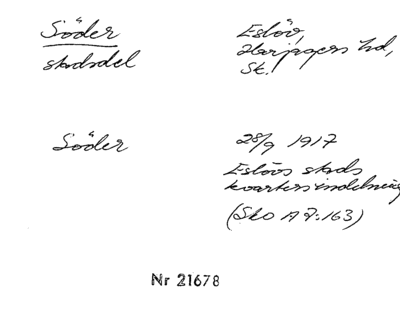 Söder
stadsdel
Eslöv,
Harjagers hd,
Sk.
Söder
28/9 1917
Eslövs stads
kvartersindelning
(SkO A 7:163)
Nr 21678